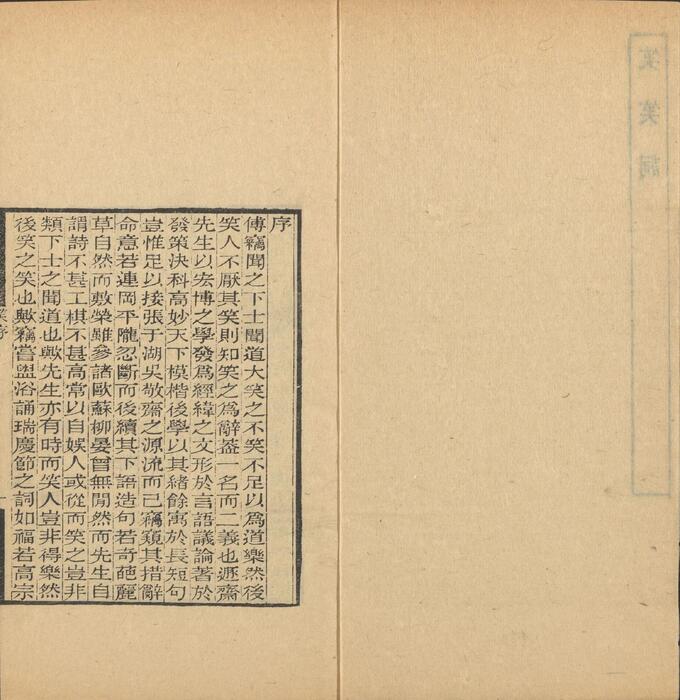 笑笑詞
序
傅竊聞之下士聞道大笑之不笑不足以爲道樂然後
笑人不厭其笑則知笑之爲辭葢一名而二義也遯齋
先生以宏博之學發爲經緯之文形於言語議論著於
發策決科高妙天下模楷後學以其緒餘寓於長短句
豈惟足以接張于湖吳敬齋之源流而已竊窺其措辭
命意若連岡平隴忽斷而後續其下語造句若奇葩麗
草自然而敷榮雖參諸歐蘇柳晏曾無閒然而先生自
謂詩不甚工棋不甚高常以自娛人或從而笑之豈非
類下士之聞道也歟先生亦有時而笑人豈非得樂然
後笑之笑也歟竊嘗盥浴誦瑞慶節之詞如福若高宗